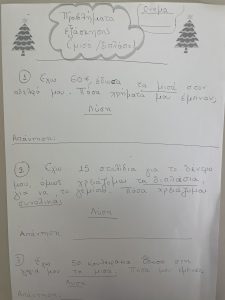 Όνομα
Προβλήματα
εξάσκησης
(μισό/διπλάσιο)
1 Έχω 60€, έδωσα τα μισά στον
αδελφό μου. Πόσα χρήματα μου έμειναν;
Λύση
Απάντηση:
2. Έχω 15 στολίδια για το δέντρο
μου, όμως χρειάζομαι τα διπλάσια,
για να το γεμίσω. Πόσα χρειάζομαι
συνολικά;
Λύση
Απάντηση
3 Έχω 50 κουλουράκια έδωσα στην
μου τα μισά. Πόσα μου έμειναν;
Λύση
Απάντηση: